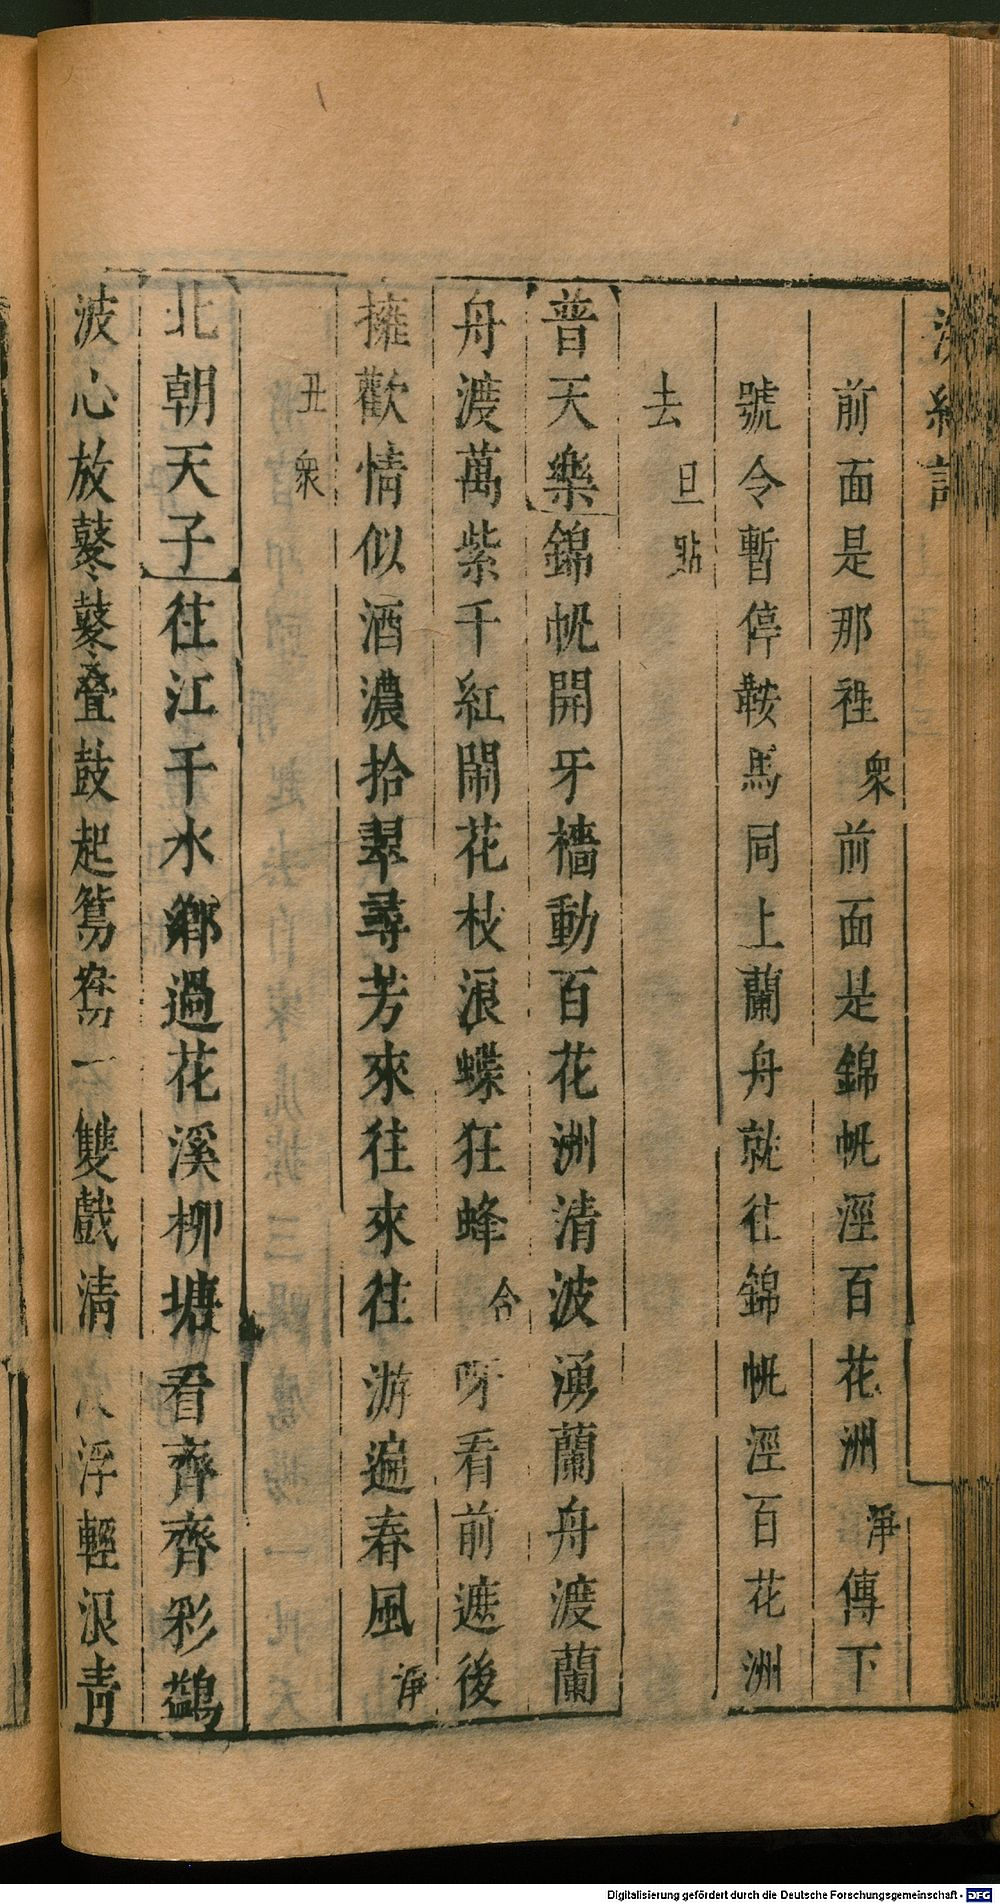 浣紗記
前面是那裡衆前面是錦帆涇百花洲淨傳下
號令暫停鞍馬同上蘭舟就往錦帆涇百花洲
去旦貼
普天樂錦帆開牙檣動百花洲清波湧蘭舟渡蘭
舟渡萬紫千紅鬧花枝浪蝶狂蜂合呀看前遮後
擁歡情似酒濃拾翠尋芳來往來往游遍春風淨
丑衆
北朝天子往江干水鄉過花溪柳塘看齊齊彩鷁
波心放鼕鼕叠鼓起鴛鴦一雙戲清浮輕浪青
Digitalisierung gefördert durch die Deutsche Forschungsgemeinschaft - DFG